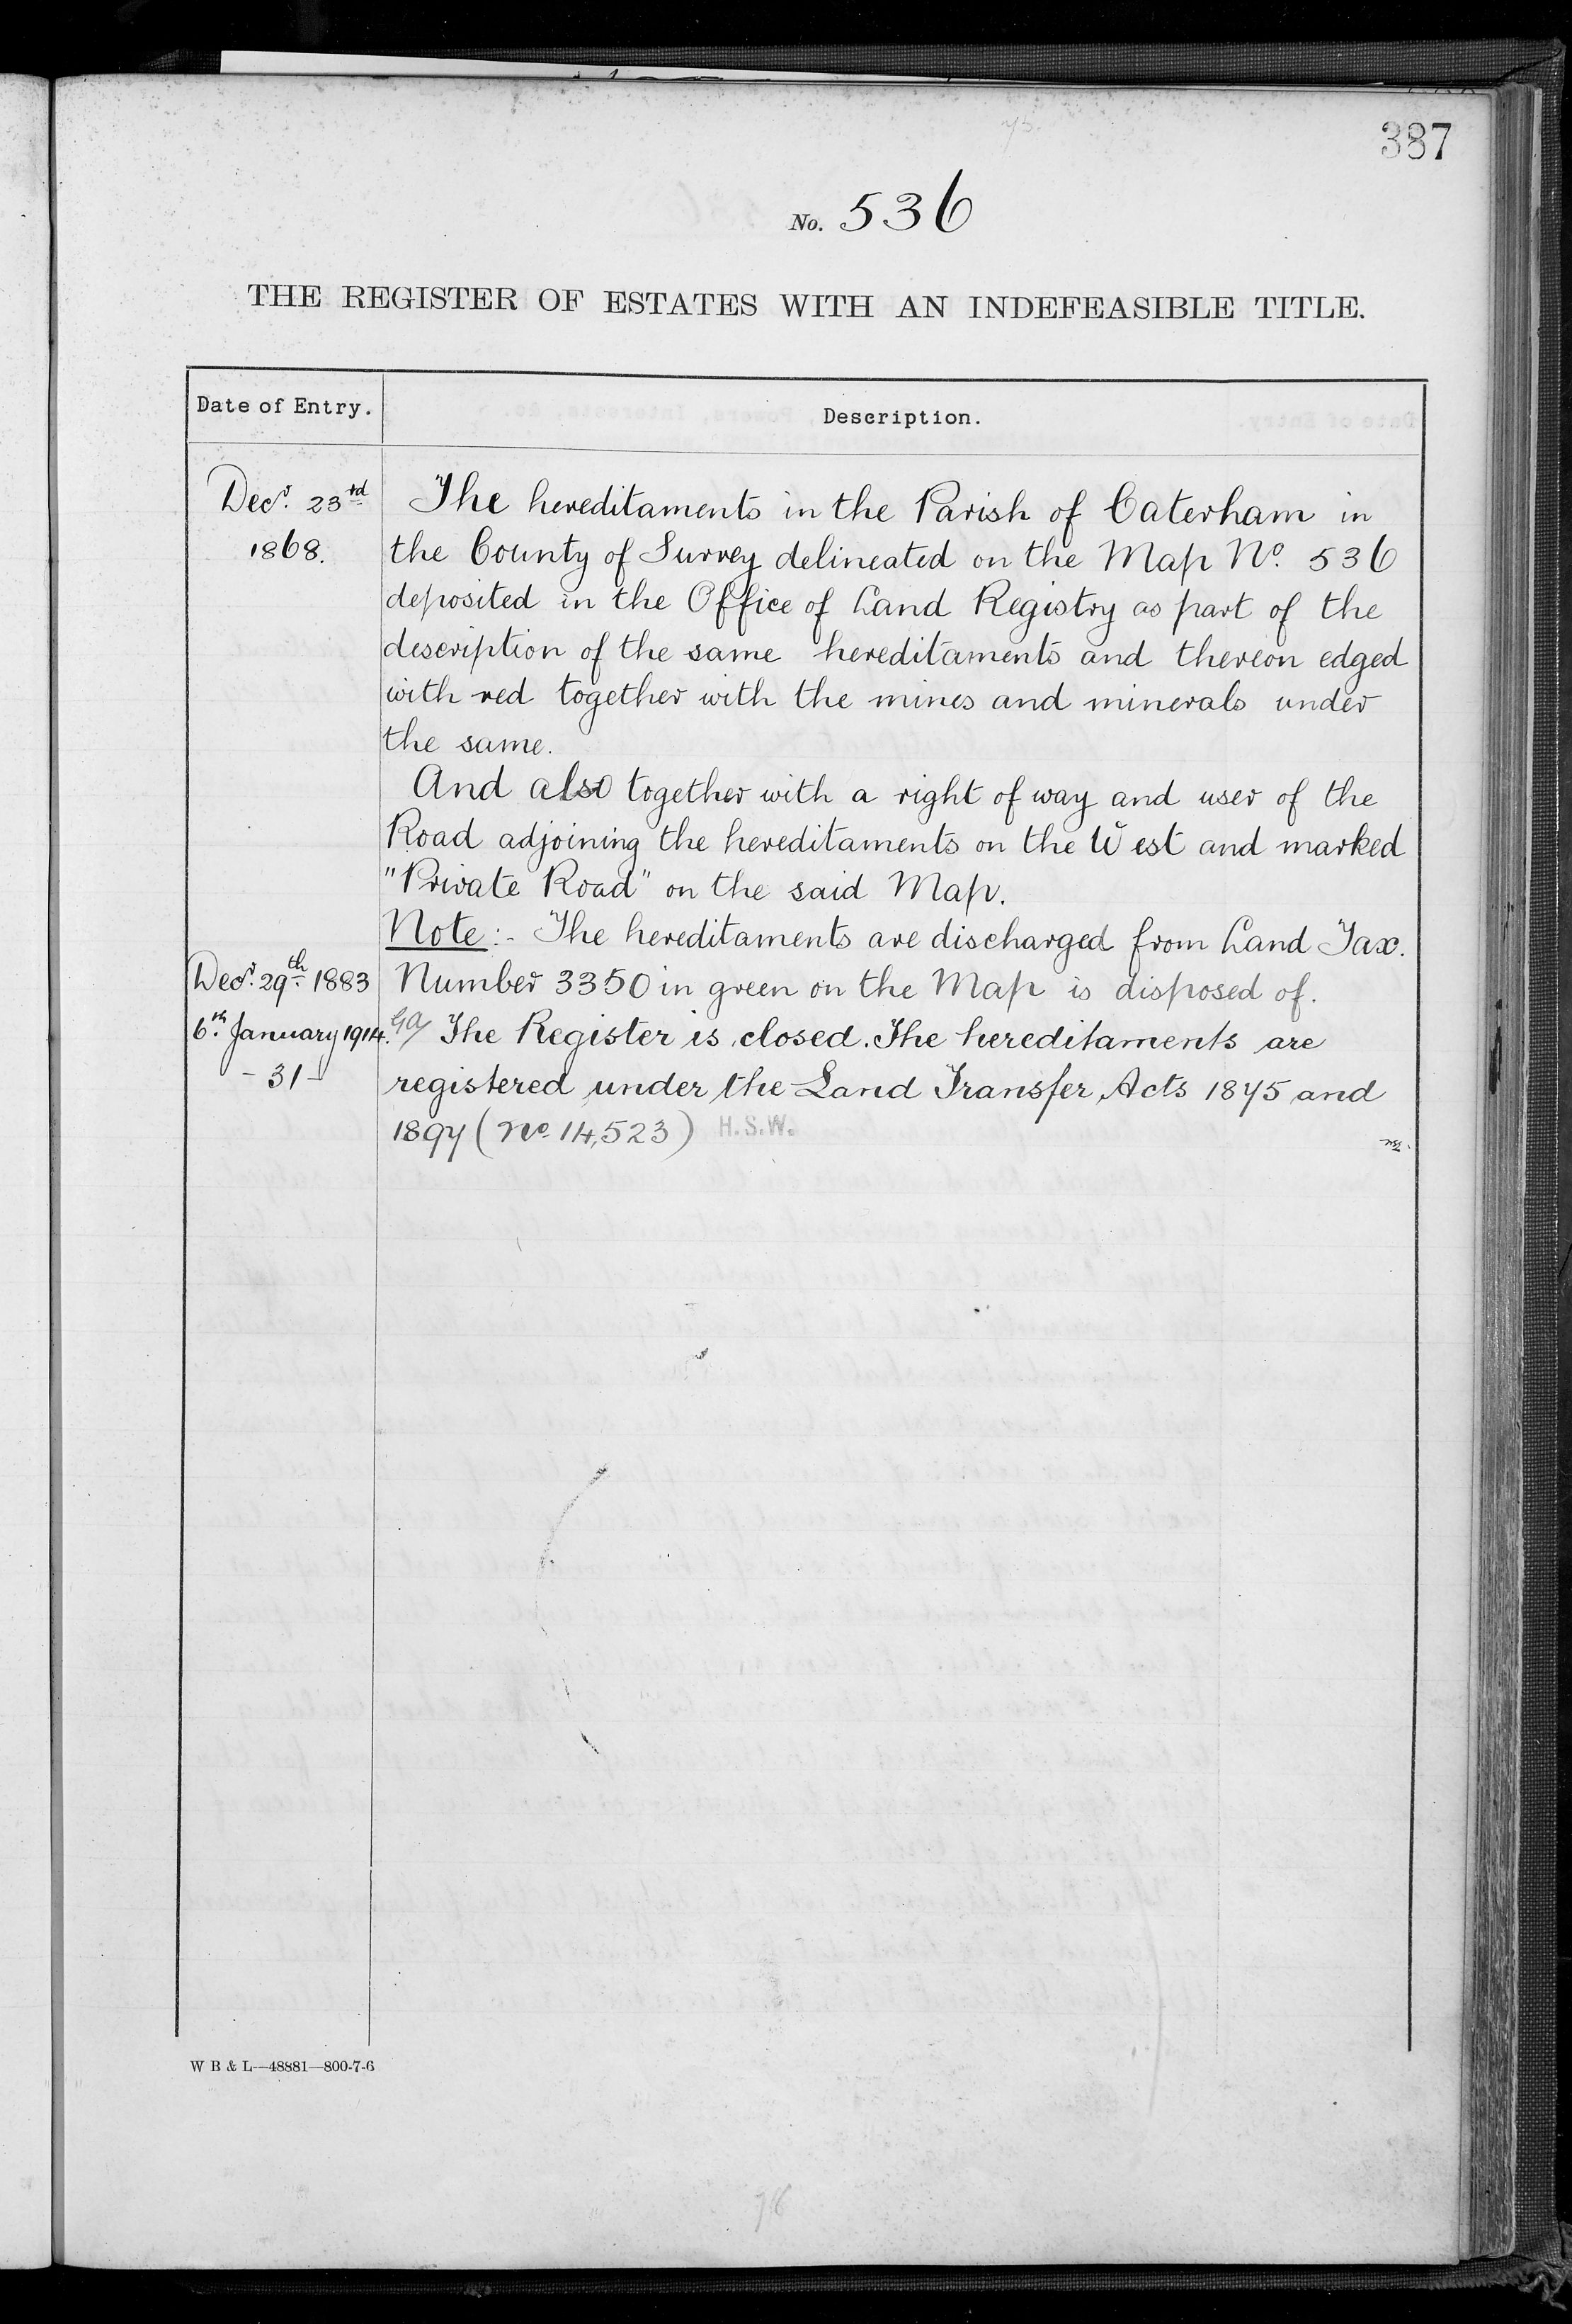 387
No. 536
THE REGISTER OF ESTATES WITH AN INDEFEASIBLE TITLE.
Date of Entry.
Description.
Decr. 23rd
1868.
The hereditaments in the Parish of Caterham in
the County of Surrey delineated on the Map No. 536
deposited in the Office of Land Registry as part of the
description of the same hereditaments and thereon edged
with red together with the mines and minerals under
the same.
And also together with a right of way and user of the
Road adjoining the hereditaments on the West and marked
"Private Road" on the said Map.
Note:- The hereditaments are discharged from Land Tax.
Decr. 29th 1883
Number 3350 in green on the Map is disposed of.
6th. January 1914.
The Register is closed. The hereditaments are
- 31 -
registered under the Land Transfer Acts 1875 and
1897 (No. 14,523) H.S.W.
W B & L—48881—800-7-6